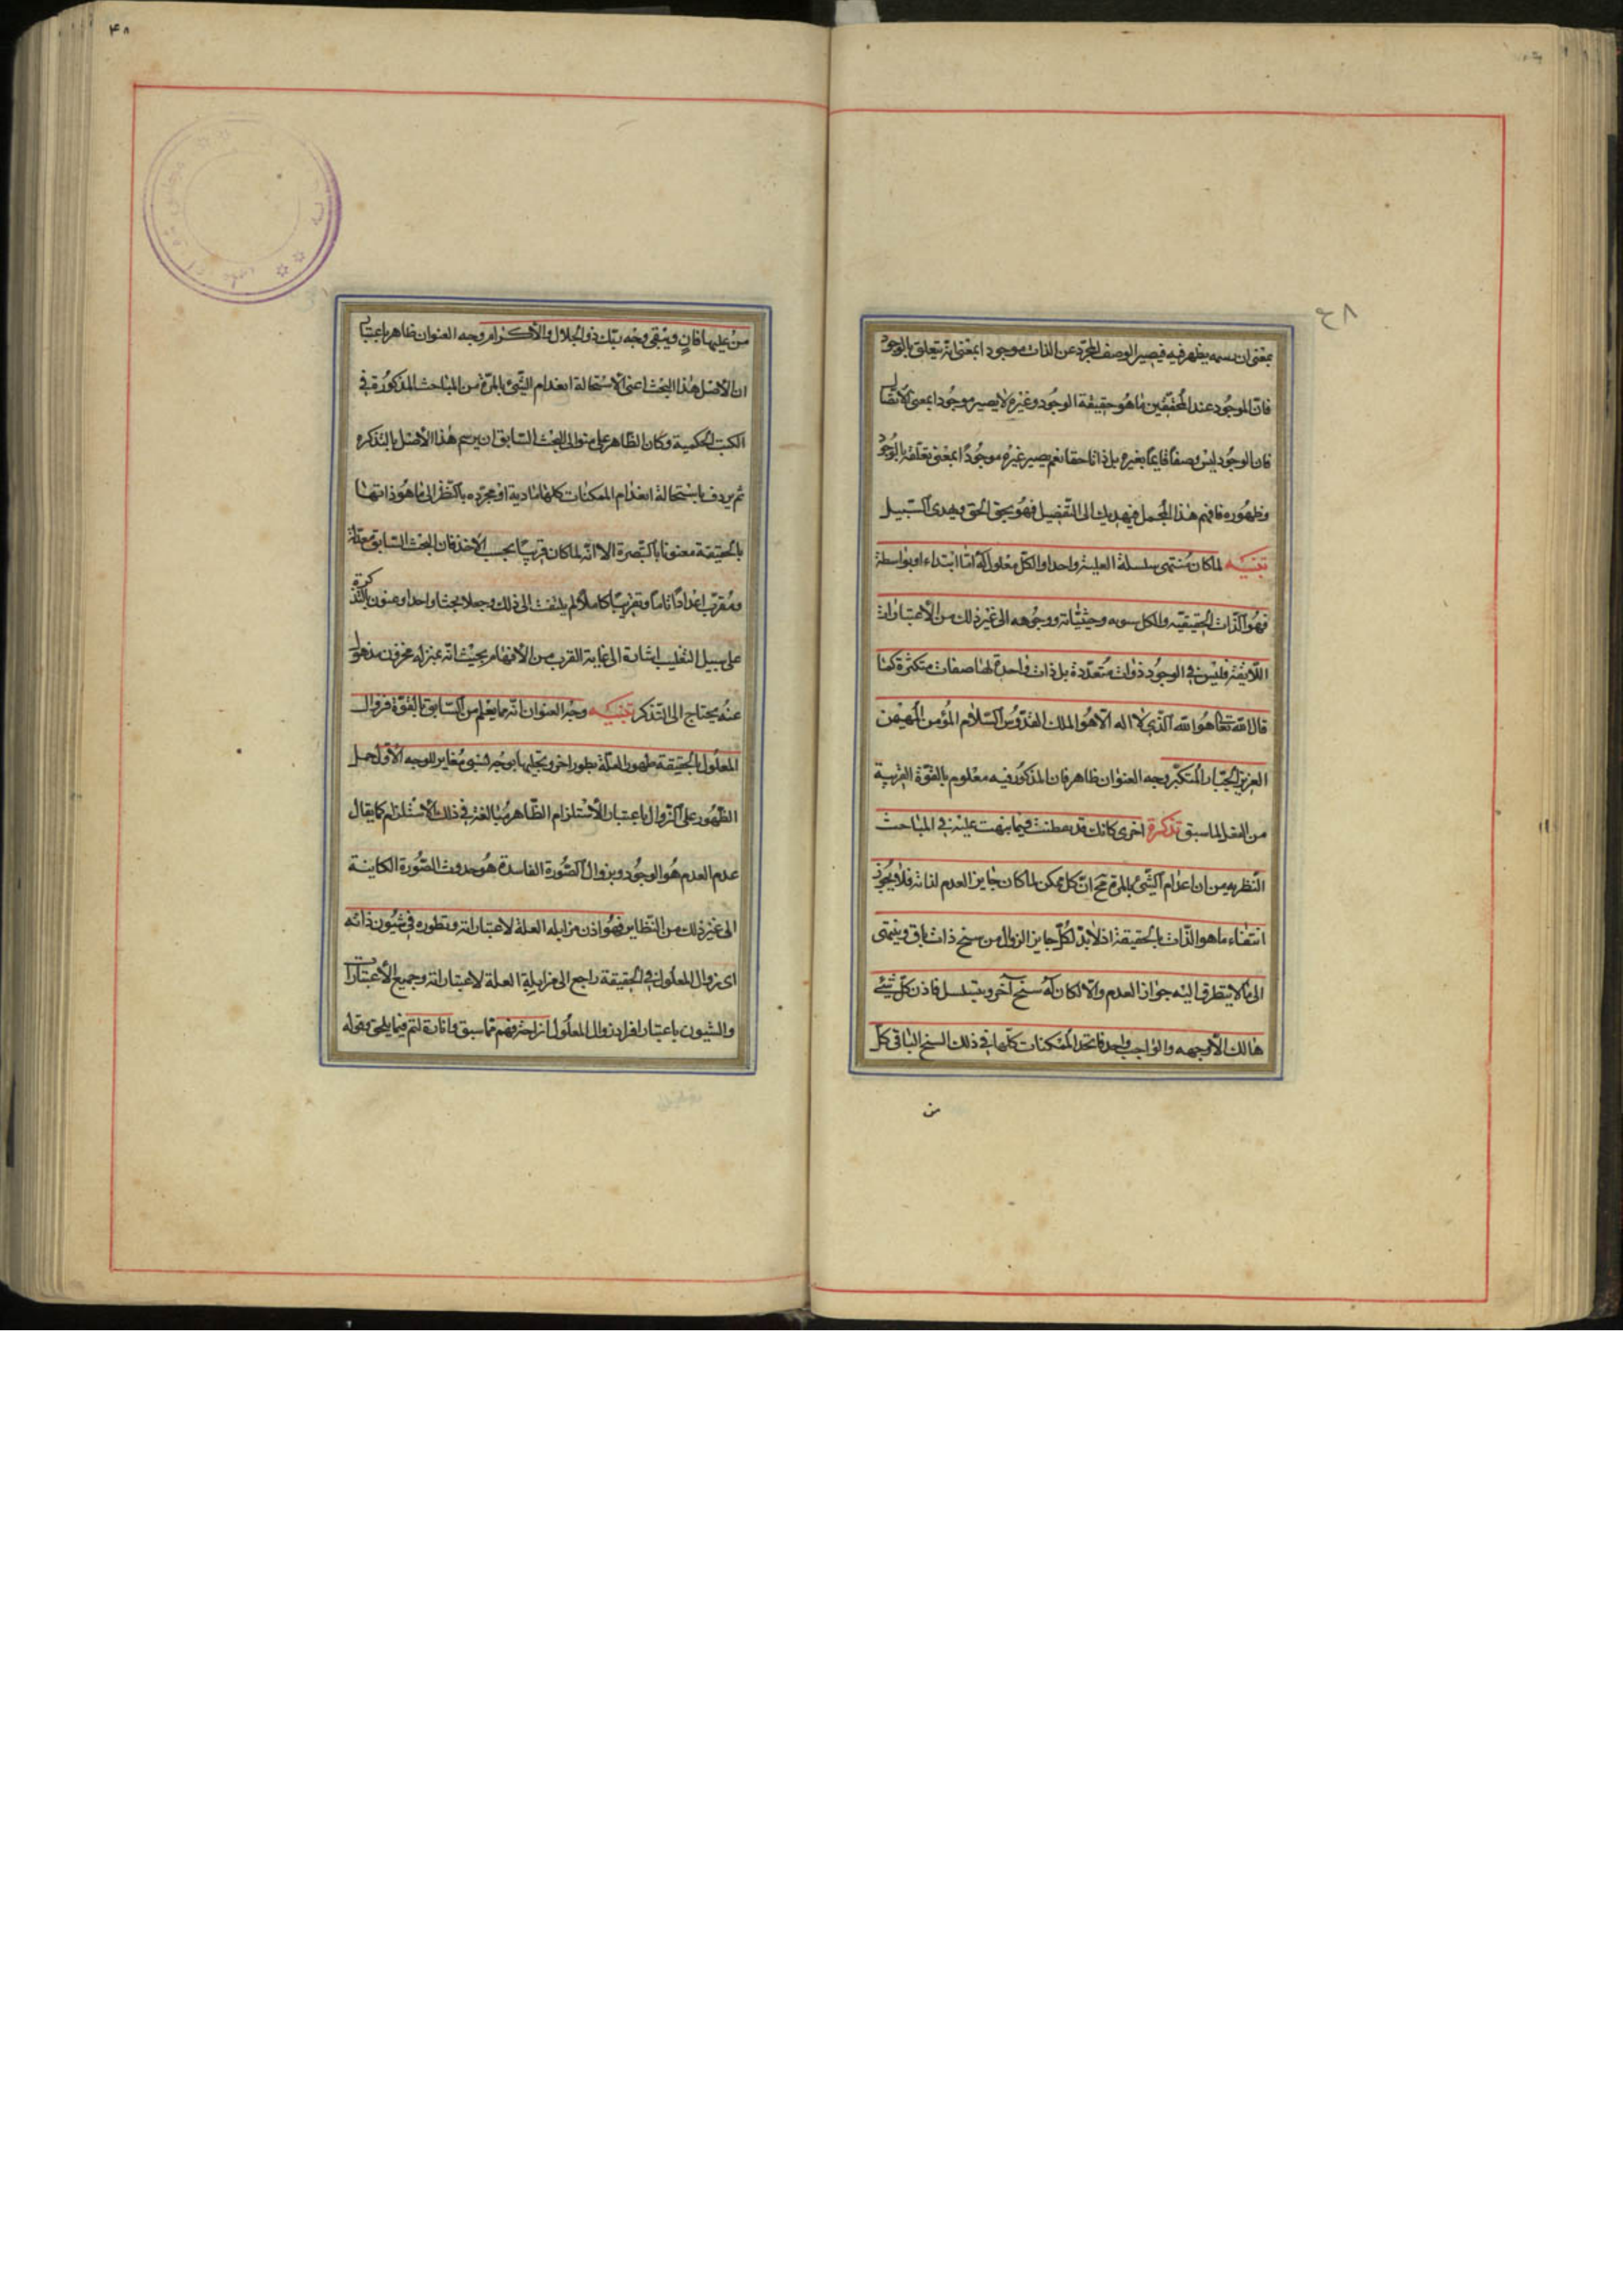 بمعنى ان رسمه يظهر فيه فيصير الوصف المجرد عن الذات موجودا بمعنى انه يتعلق بالوجود
فان الموجود عند المحققين ما هو حقيقة الوجود وغيره لا يصير موجودا بمعنى الاتصال
فان الوجود ليس وصفا قايما بغيره بل ذاتا حقا نعم يصير غيره موجودا بمعنى تعلقه بالوجود
وظهوره فافهم هذا المجمل فيهديك الى التفصيل فهو يحق الحق ويهدى السبيل
تنبيه لما كان منتهى سلسلة العلية واحدا والكل معلول له اما ابتداء او بواسطة
فهو الذات الحقيقيه والكل سوه وحيثياته ووجوهه الى غير ذلك من الاعتبارات
اللايقة فليس في الوجود ذوات متعددة بل ذات واحدة لها صفات متكثرة كما
قال الله تعا هو الله الذي لا اله الا هو الملك القدوس السلام المؤمن المهيمن
العزيز الجبار المتكبر وجه العنوان ظاهر فان المذكور فيه معلوم بالقوة القريبة
من الفعل لما سبق تذكرة اخرى كانك قد تفطنت فيما نبهت عليه في المباحث
النظريه من ان اعدام الشئ بالمرة مح ان كل ممكن لما كان جايز العدم لذاته فلا يجوز
انتفاء ما هو الذات بالحقيقة اذ لا بد لكل جايز الزوال من سنخ ذات باق وينتهى
الى ما لا يتطرق اليه جواز العدم والا لكان له سنخ آخر ويتسلسل فاذن كل شئ
هالك الا وجهه والواجب واحد فاتحد الممكنات كلها في ذلك السنخ الباقى كل
من
٤٨
۴۸
من عليها فان ويبقى وجه ربك ذو الجلال والاكرام وجه العنوان ظاهر باعتبار
ان الاصل هذا البحث اعنى الاستحالة انعدام الشئ بالمرة من المباحث المذكورة في
الكتب الحكمية وكان الظاهر على منوال البحث السابق ان يرسم هذا الاصل بالتذكره
ثم يردف باستحالة انعدام الممكنات كلها مادية او مجرده بالنظر الى ما هو ذاتها
بالحقيقة معنونا بالتبصرة الا انه لما كان قريبا بحسب الاخذ فان البحث السابق معدله
ومقرب اعدادا تاما وتقريبا كاملا لم يلتفت الى ذلك وجعلا بحثا واحدا وعنون بالتذكرة
على سبيل التغليب اشارة الى غاية القرب من الافهام بحيث انه بمنزلة مخزون مذهول
عنه يحتاج الى التذكر تنبيه وجه العنوان انه مما يعلم من السابق بالقوة فزوال
المعلول بالحقيقة ظهور العلة بطور اخر وتجليها بوجه شبى مغاير للوجه الاول حمل
الظهور على الزوال باعتبار الاستلزام الظاهر مبالغة في ذلك الاستلزام كما يقال
عدم العدم هو الوجود وزوال الصورة الفاسدة هو حدوث الصورة الكاينة
الى غير ذلك من النظاير فهو اذن مزايله العلة لاعتباراته وتطوره في شيون ذاته
اى زوال المعلول في الحقيقة راجع الى مزايلة العلة لاعتباراته وجميع الاعتبارات
والشيون باعتبار زوال المعلول مما سبق فيما يلحق وقوله